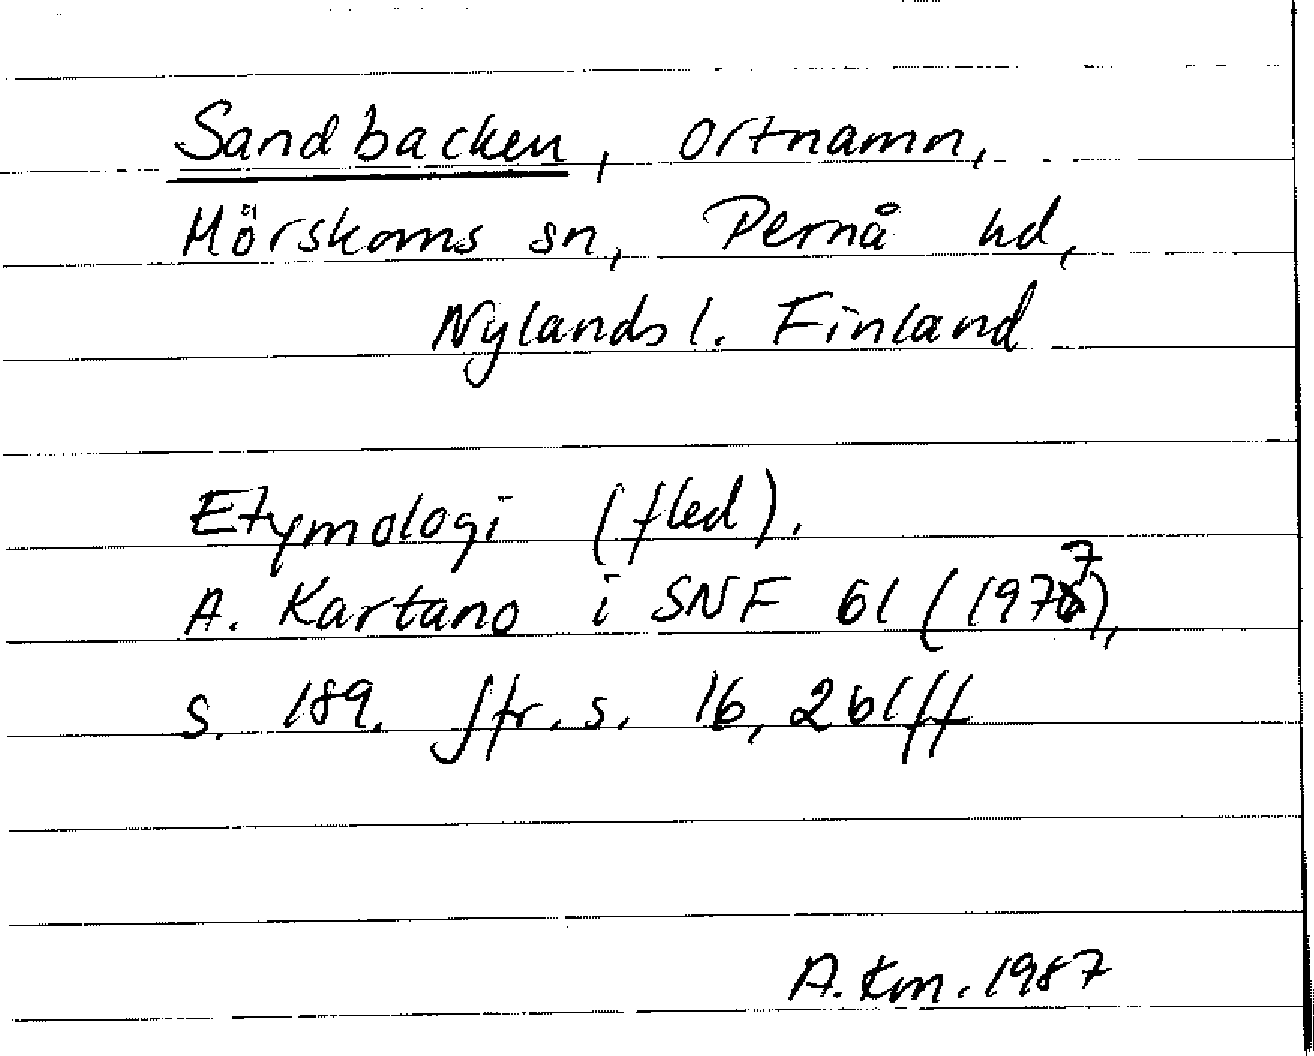 Sandbacken, ortnamn,
Mörskoms sn, Pernå hd,
Nylands l. Finland
Etymologi (fled).
A. Kartano i SNF 61 (1977),
s. 189. Jfr. s. 16, 261ff
A. Km. 1987